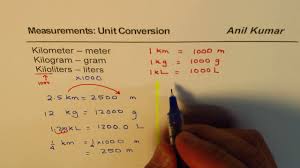 Measurements: Unit Conversion
Anil Kumar
Kilometer – meter
1 km = 1000 m
Kilogram – gram
1 kg = 1000 g
Kiloliters – liters
1 kL = 1000 L
1000
x1000
2.5 km = 2500 m
12 kg = 12000 g
1.2 kL = 1200.0 L
1/4 km = 1/4 x 1000 m
= 250 m